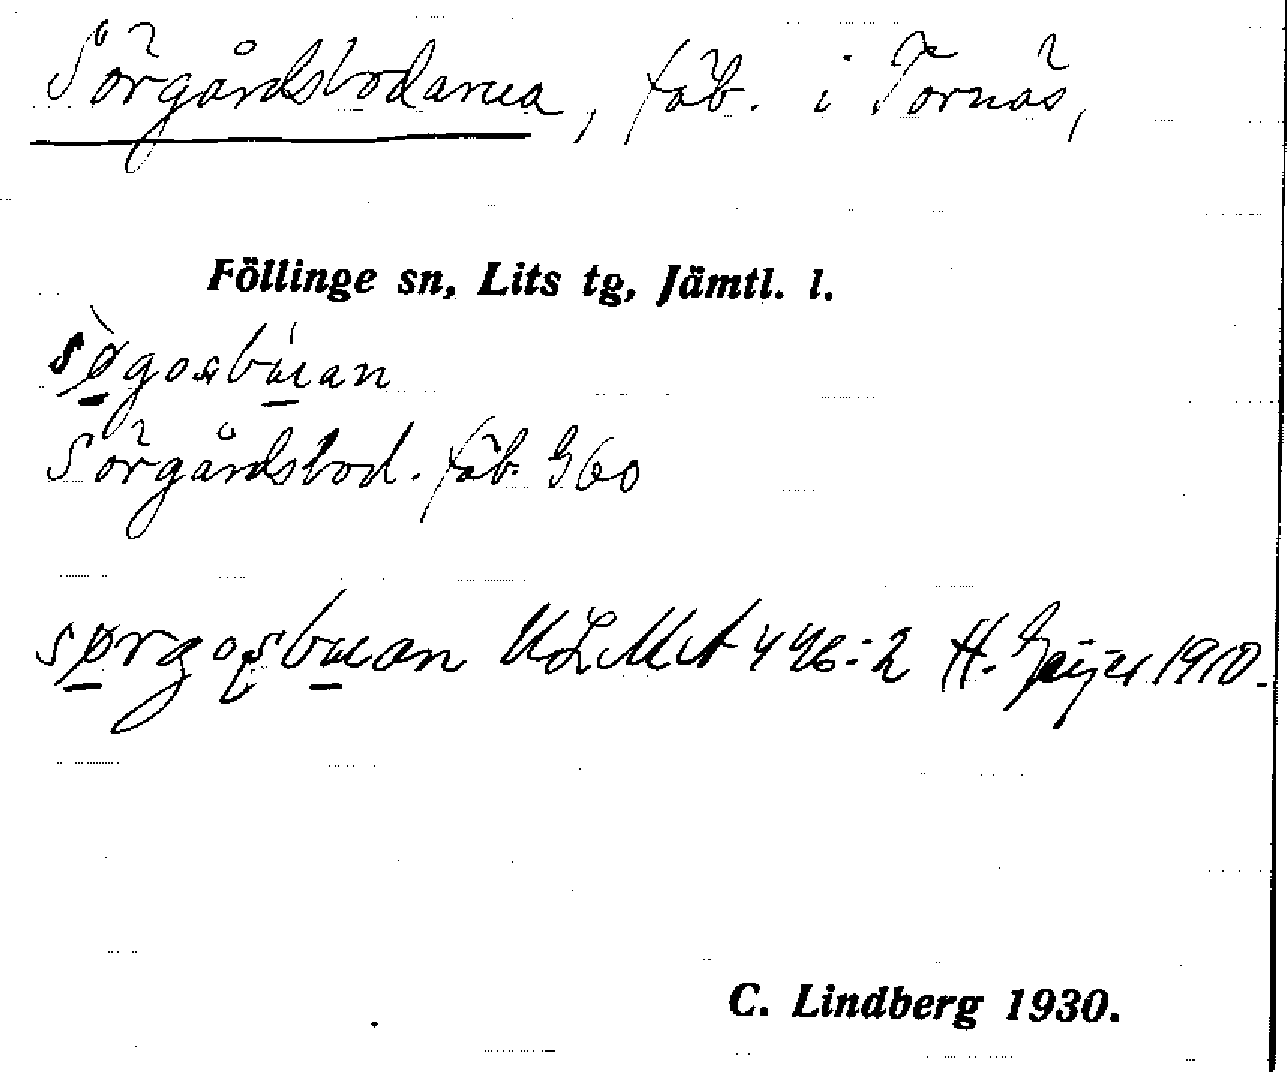 Sörgårdsbodarna, fäb. i Tornäs,
Föllinge sn, Lits tg, Jämtl. l.
sø̀gosbúan
Sörgårdsbod. fäb. G60
sørgosbuan ULMA 446:2 H. Geijer 1910.
C. Lindberg 1930.